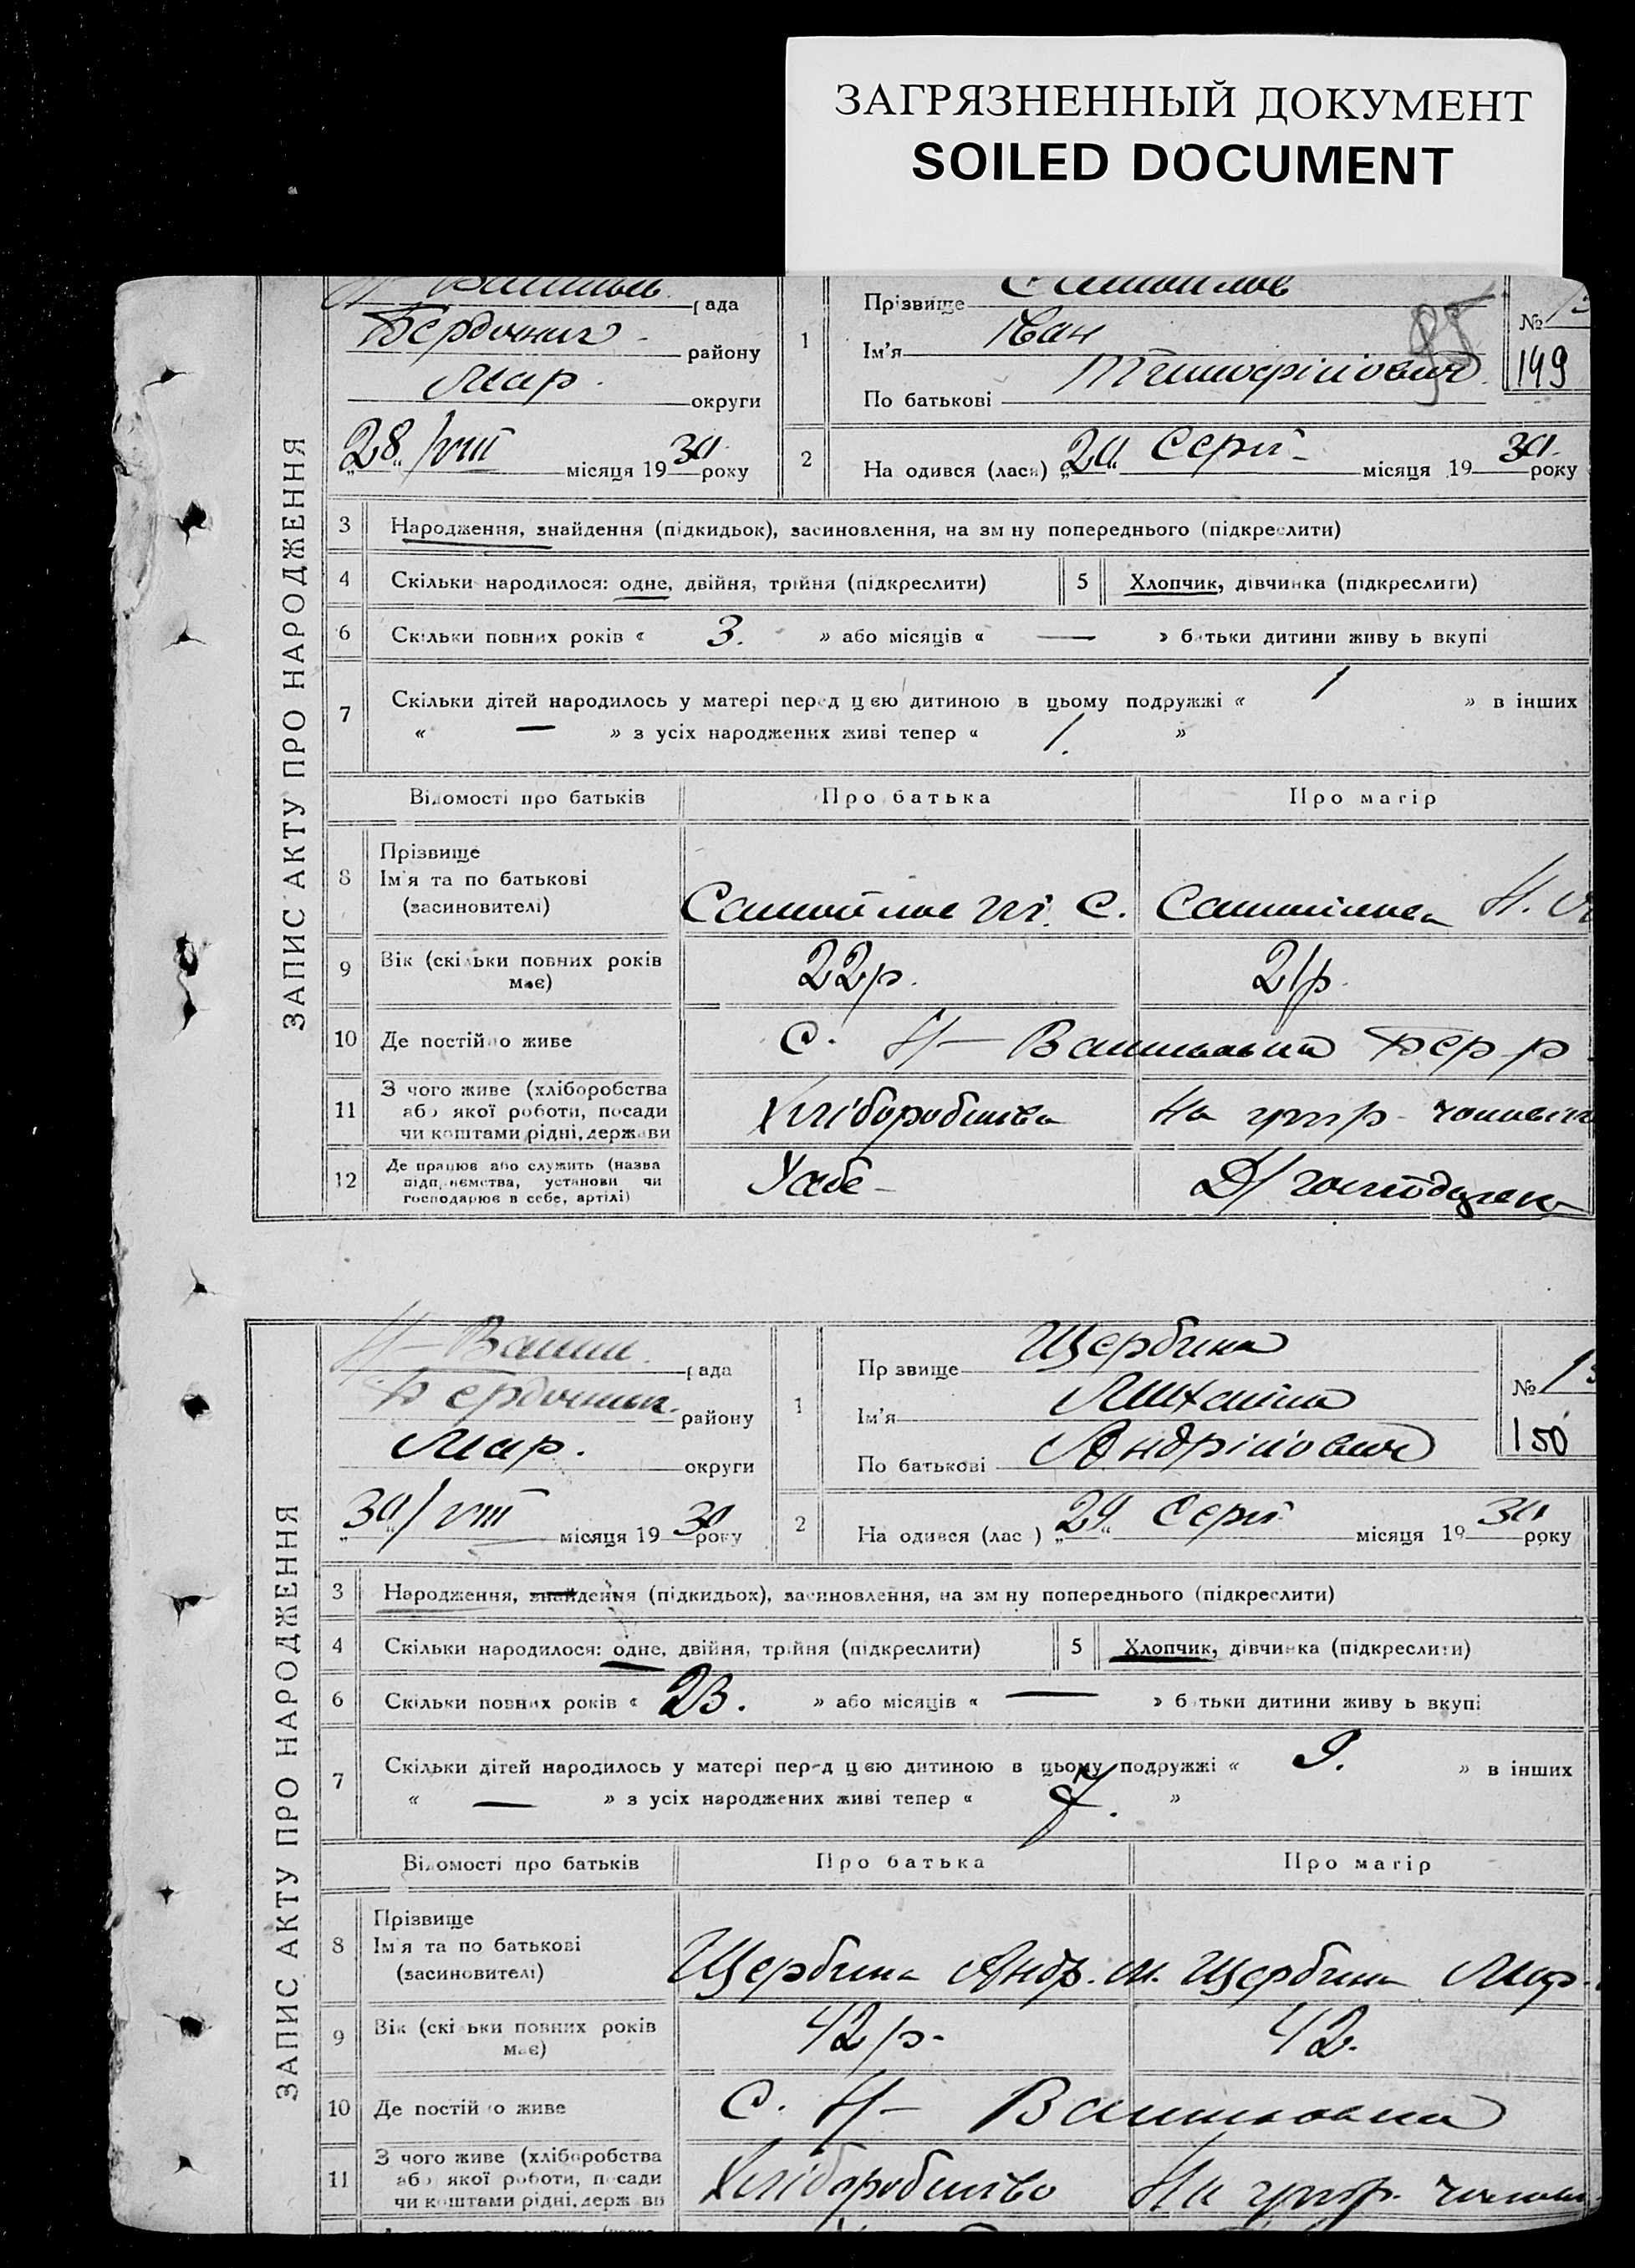 ЗАГРЯЗНЕННЫЙ ДОКУМЕНТ
SOILED DOCUMENT
ЗАПИС АКТУ ПРО НАРОДЖЕННЯ
рада
Бердянськ району
Мар. округи
"28"/VIII місяця 1930 року
1 Прізвище Самойлов
Ім'я Іван
По батькові Тимофійович
95
№
149
2 На одився (лася) "20" Серп місяця 1930 року
3 Народження, знайдення (підкидьок), засиновлення, на зм ну попереднього (підкреслити)
4 Скільки народилося: одне, двійня, трійня (підкреслити) 5 Хлопчик, дівчинка (підкреслити)
6 Скільки повних років « 3. » або місяців « — » батьки дитини живу ь вкупі
7 Скільки дітей народилось у матері перед цією дитиною в цьому подружжі « 1 » в інших
« — » з усіх народжених живі тепер « 1. »
Відомості про батьків Про батька Про матір
8 Прізвище
Ім'я та по батькові
(засиновителі) Самойлов Т. С. Самойлова Н.
9 Вік (скільки повних років
має) 22р. 21р.
10 Де постійно живе С. Н-
11 З чого живе (хліборобства
або якої роботи, посади
чи коштами рідні, держави Хліборобства На утр. чоловіка
12 Де працює або служить (назва
підприємства, установи чи
господарює в себе, артілі) У себе Д/господарка
ЗАПИС АКТУ ПРО НАРОДЖЕННЯ
рада
району
Мар. округи
"30"/VIII місяця 1930 року
1 Пр звище Щербина
Ім'я Михайло
По батькові Андрійович
№
150
2 На одився (лас ) "29" Серп місяця 1930 року
3 Народження, знайдення (підкидьок), засиновлення, на зм ну попереднього (підкреслити)
4 Скільки народилося: одне, двійня, трійня (підкреслити) 5 Хлопчик, дівчинка (підкреслити)
6 Скільки повних років « 23. » або місяців « — » б тьки дитини живу ь вкупі
7 Скільки дітей народилось у матері перед цією дитиною в цьому подружжі « 9. » в інших
« — » з усіх народжених живі тепер « 7. »
Відомості про батьків Про батька Про матір
8 Прізвище
Ім'я та по батькові
(засиновителі) Щербина Андр. М. Щербина Мар.
9 Вік (скільки повних років
має) 42р. 42.
10 Де постійно живе С. Н-
11 З чого живе (хліборобства
або якої роботи, посади
чи коштами рідні, держави Хліборобство На утр. чоловік